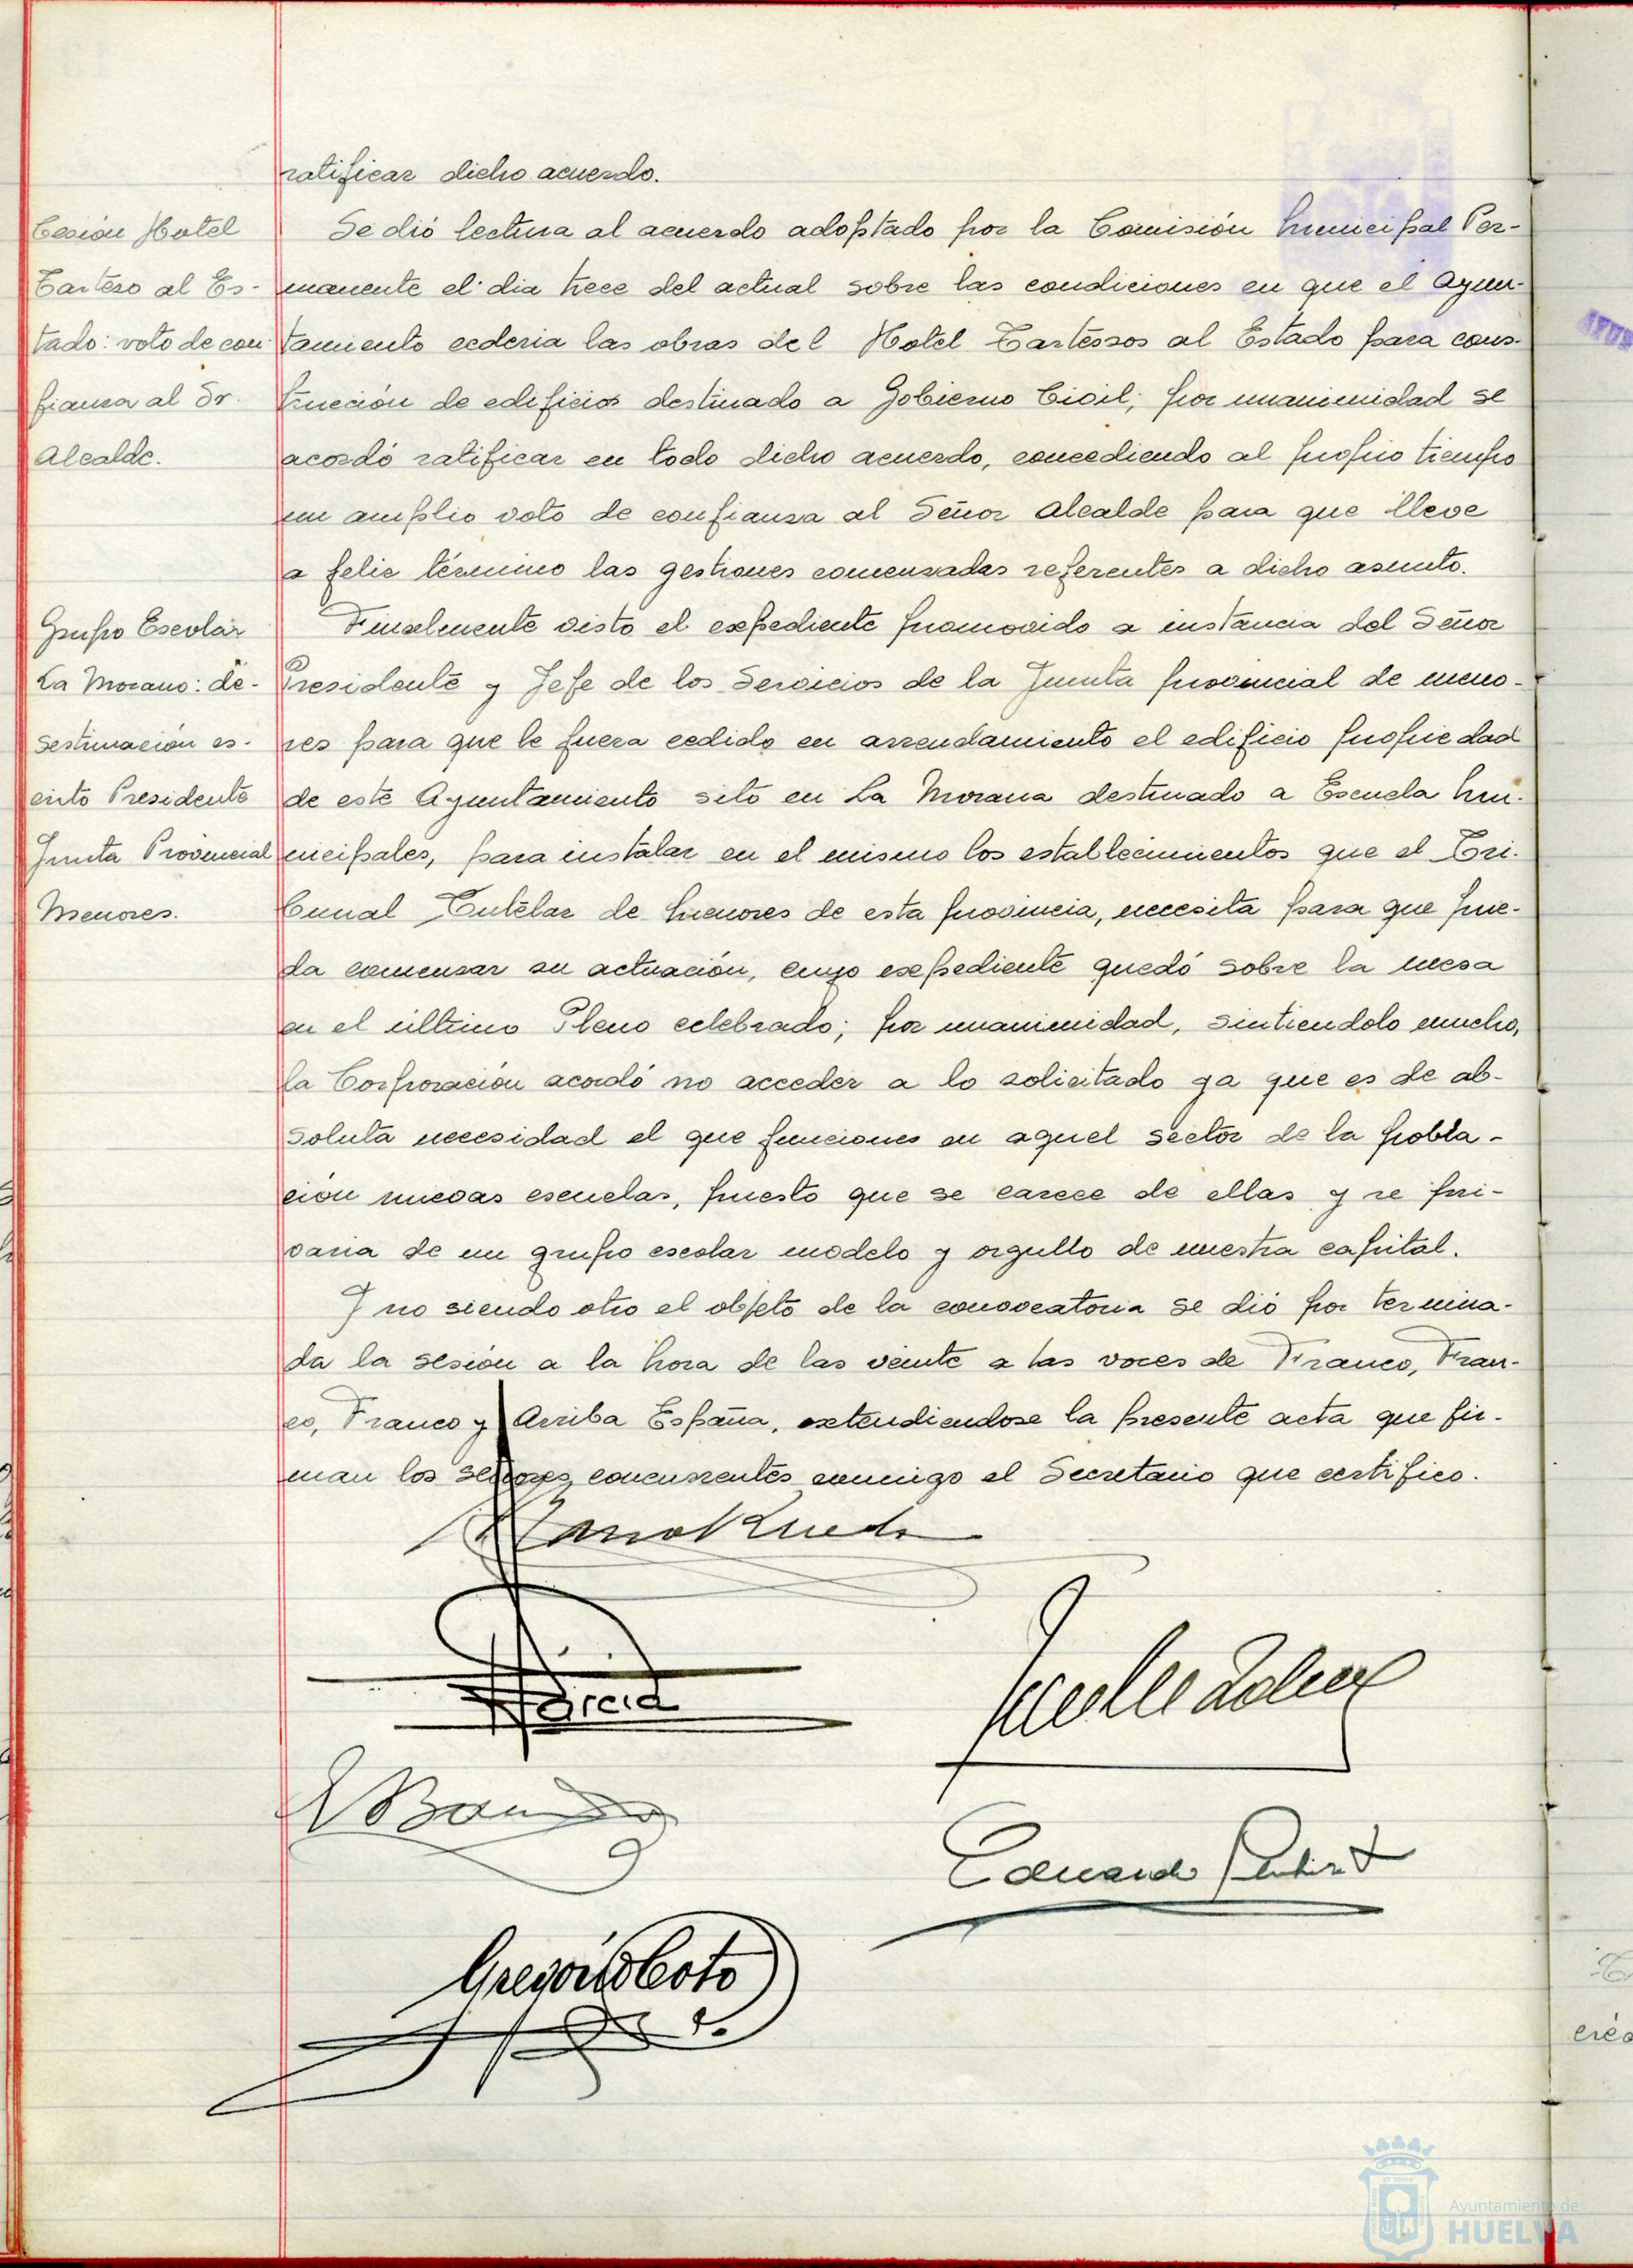 ratificar dicho acuerdo.
Cesión Hotel
Tarteso al Es-
tado: voto de con
fianza al Sr.
Alcalde.
Se dió lectura al acuerdo adoptado por la Comisión Municipal Per-
manente el dia trece del actual sobre las condiciones en que el Ayun-
tamiento cederia las obras del Hotel Tartessos al Estado para cons-
trucción de edificios destinado a Gobierno Civil; por unanimidad se
acordó ratificar en todo dicho acuerdo, concediendo al propio tiempo
un amplio voto de confianza al Señor Alcalde para que lleve
a feliz término las gestiones comenzadas referentes a dicho asunto.
Grupo Escolar
La Morano: de-
sestimación es-
crito Presidente
Junta Provincial
Menores.
Finalmente visto el expediente promovido a instancia del Señor
Presidente y Jefe de los Servicios de la Junta provincial de meno-
res para que le fuera cedido en arrendamiento el edificio propiedad
de este Ayuntamiento sito en La Morana destinado a Escuela Mu-
nicipales, para instalar en el mismo los establecimientos que el Tri-
bunal Tutelar de Menores de esta provincia, necesita para que pue-
da comenzar su actuación, cuyo expediente quedó sobre la mesa
en el último Pleno celebrado; por unanimidad, sintiendolo mucho,
la Corporación acordó no acceder a lo solicitado ya que es de ab-
soluta necesidad el que funciones en aquel sector de la pobla-
ción nuevas escuelas, puesto que se carece de ellas y se pri-
varia de un grupo escolar modelo y orgullo de nuestra capital.
Y no siendo otro el objeto de la convocatoria se dió por termina-
da la sesión a la hora de las veinte a las voces de Franco, Fran-
co, Franco y Arriba España, extendiendose la presente acta que fir-
man los señores concurrentes conmigo el Secretario que certifico.
García
Eduardo
Gregorio Coto
Ayuntamiento de
HUELVA